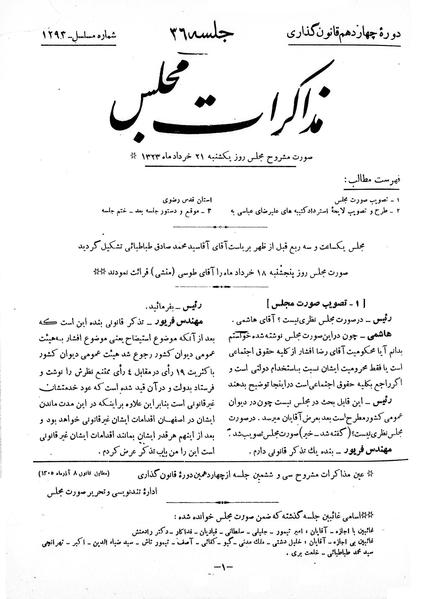 دورهٔ چهاردهم قانون گذاری
جلسه ۳۶
شماره مسلسل ـ ۱۲۹۳
مذاکرات مجلس
صورت مشروح مجلس روز یکشنبه ۲۱ خرداد ماه ۱۳۲۳ *
فهرست مطالب:
۱ ـ تصویب صورت مجلس
۲ ـ طرح و تصویب لایحهٔ استرداد کتیبه های علیرضای عباسی به
آستان قدس رضوی
۳ ـ موقع و دستور جلسه بعد ـ ختم جلسه
مجلس یکساعت و سه ربع قبل از ظهر بریاست آقای آقاسید محمد صادق طباطبائی تشکیل گردید
صورت مجلس روز پنجشنبه ۱۸ خرداد ماه را آقای طوسی (منشی) قرائت نمودند **
[ ۱ ـ تصویب صورت مجلس ]
رئیس ـ در صورت مجلس نظری نیست؟ آقای هاشمی.
هاشمی ـ چون در این صورت مجلس نوشته شده خواستم
بدانم آیا محکومیت آقای رضا افشار از کلیه حقوق اجتماعی
است یا فقط محرومیت ایشان نسبت باستخدام دولتی است و
اگر راجع بکلیه حقوق اجتماعی است در اینجا توضیح بدهند
رئیس ـ این قابل بحث در مجلس نیست چون در دیوان
عمومی کشور مطرح است بعد بعرض آقایان میرسد. در صورت
مجلس نظری نیست؟ (گفته شد ـ خیر) صورت مجلس تصویب شد
مهندس فریور ـ بنده یک تذکر قانونی دارم.
رئیس ـ بفرمائید.
مهندس فریور ـ تذکر قانونی بنده این است که
بعد از آنکه موضوع استیضاح یعنی موضوع افشار بهیئت
عمومی دیوان کشور رجوع شد هیئت عمومی دیوان کشور
با کثریت ۱۹ رأی در مقابل ٤ رأی ممتنع نظرش را نوشت و
فرستاد بدولت و در آن قید شده است که عود خدمتشان
غیر قانونی است بنابر این علاوه بر اینکه در این مدت ماندن
ایشان در اصفهان اقدامات ایشان غیر قانونی خواهد بود و
بعد از اینهم هر قدر ایشان بمانند اقدامات ایشان غیر قانونی
است این را من باب تذکر عرض کردم.
* عین مذاکرات مشروح سی و ششمین جلسه از چهاردهمین دورهٔ قانون گذاری (مطابق قانون ۸ آذر ماه ۱۳۰۵)
ادارهٔ تندنویسی و تحریر صورت مجلس
** اسامی غائبین جلسه گذشته که ضمن صورت مجلس خوانده شده:
غائبین با اجازه ـ آقایان: امیر تیمور ـ جلیلی ـ سلطانی ـ قبادیان ـ فداکار ـ دکتر رادمنش
غائبین بی اجازه ـ آقایان: خلیل دشتی ـ ملک مدنی ـ گیو ـ کفائی ـ آصف ـ تیمور تاش ـ سید ضیاء الدین ـ اکبر ـ تهرانچی
سید محمد طباطبائی ـ خلعت بری.
ـ۱ـ